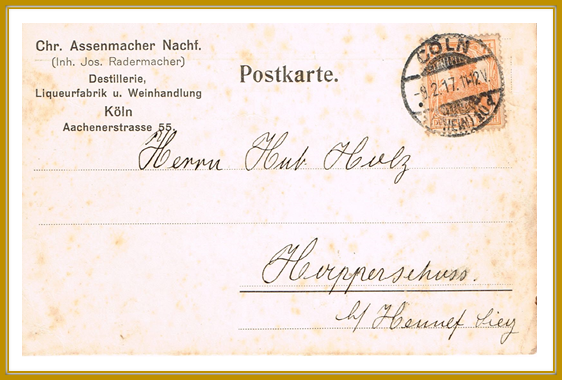 Chr. Assenmacher Nachf.
(Inh. Jos. Radermacher)
Destillerie,
Liqueurfabrik u. Weinhandlung
Köln
Aachenerstrasse 55
Postkarte.
CÖLN
-9.2.17.11-12V.
Herrn Hub. Holz
Happerschoss.
b/ Hennef Sieg